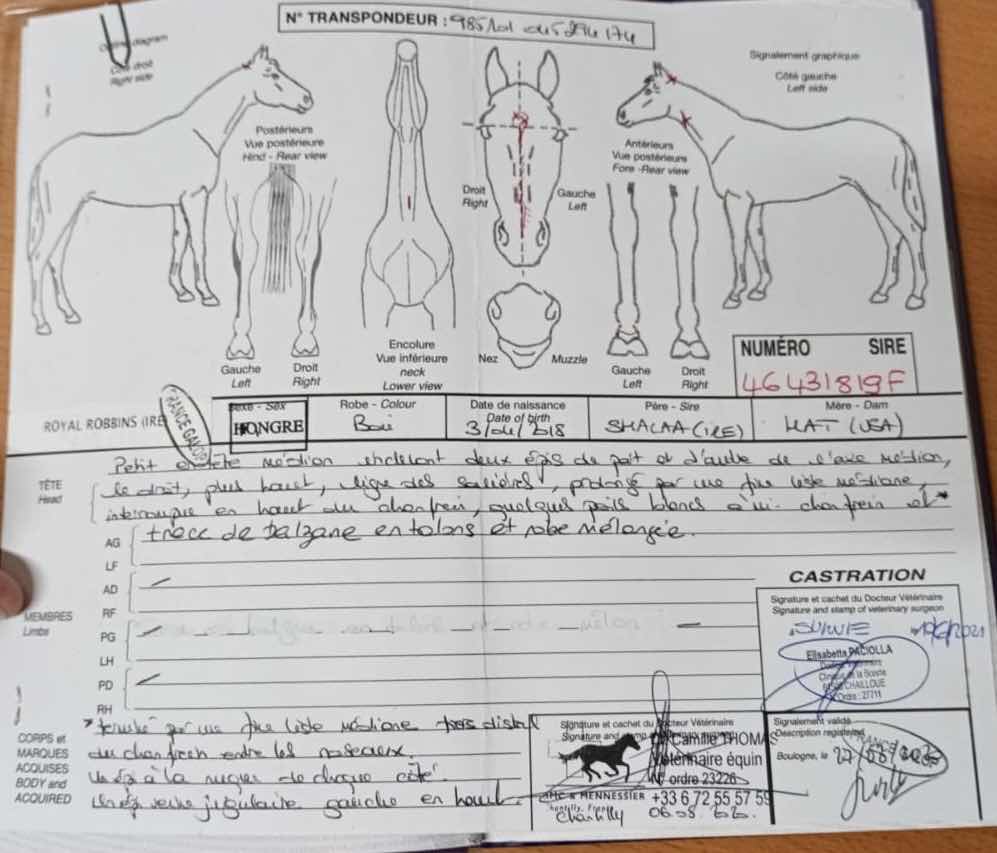 N° TRANSPONDEUR :
Outline diagram
Côté droit
Right side
Signalement graphique
Côté gauche
Left side
Postérieurs
Vue postérieure
Hind - Rear view
Antérieurs
Vue postérieure
Fore -Rear view
Droit
Right
Gauche
Left
Encolure
Vue inférieure
neck
Lower view
Nez
Muzzle
Gauche
Left
Droit
Right
Gauche
Left
Droit
Right
NUMÉRO SIRE
46431819F
ROYAL ROBBINS (IRE
FRANCE GALOP
Sexe - Sex
HONGRE
Robe - Colour
Bai
Date de naissance
Date of birth
Père - Sire
SHALAA (IRE)
Mère - Dam
HAT (USA)
TÊTE
Head
Petit en tête médian incluant deux épis de part et d'autre de l'axe médian,
le droit, plus haut, ligne des salières, prolongé par une fine liste médiane,
interrompue en haut du chanfrein, quelques poils blancs à mi-chanfrein et *
MEMBRES
Limbs
AG
LF
trace de balzane en talons et robe mélangée.
AD
RF
PG
LH
PD
RH
CASTRATION
Signature et cachet du Docteur Vétérinaire
Signature and stamp of veterinary surgeon
SUIVIE
Elisabetta PACIOLLA
CHAILLOUE
Ordre : 27711
CORPS et
MARQUES
ACQUISES
BODY and
ACQUIRED
* par une fine liste médiane
du chanfrein entre les naseaux
Un épi à la nuque de chaque côté
Un épi veine jugulaire gauche en haut
Signature et cachet du Docteur Vétérinaire
Camille THOMAS
Vétérinaire équin
N° ordre 23226
MENNESSIER +33 6 72 55 57 59
Chantilly, France
Chantilly 06.08.20.
Signalement validé
Description registered
Boulogne, le